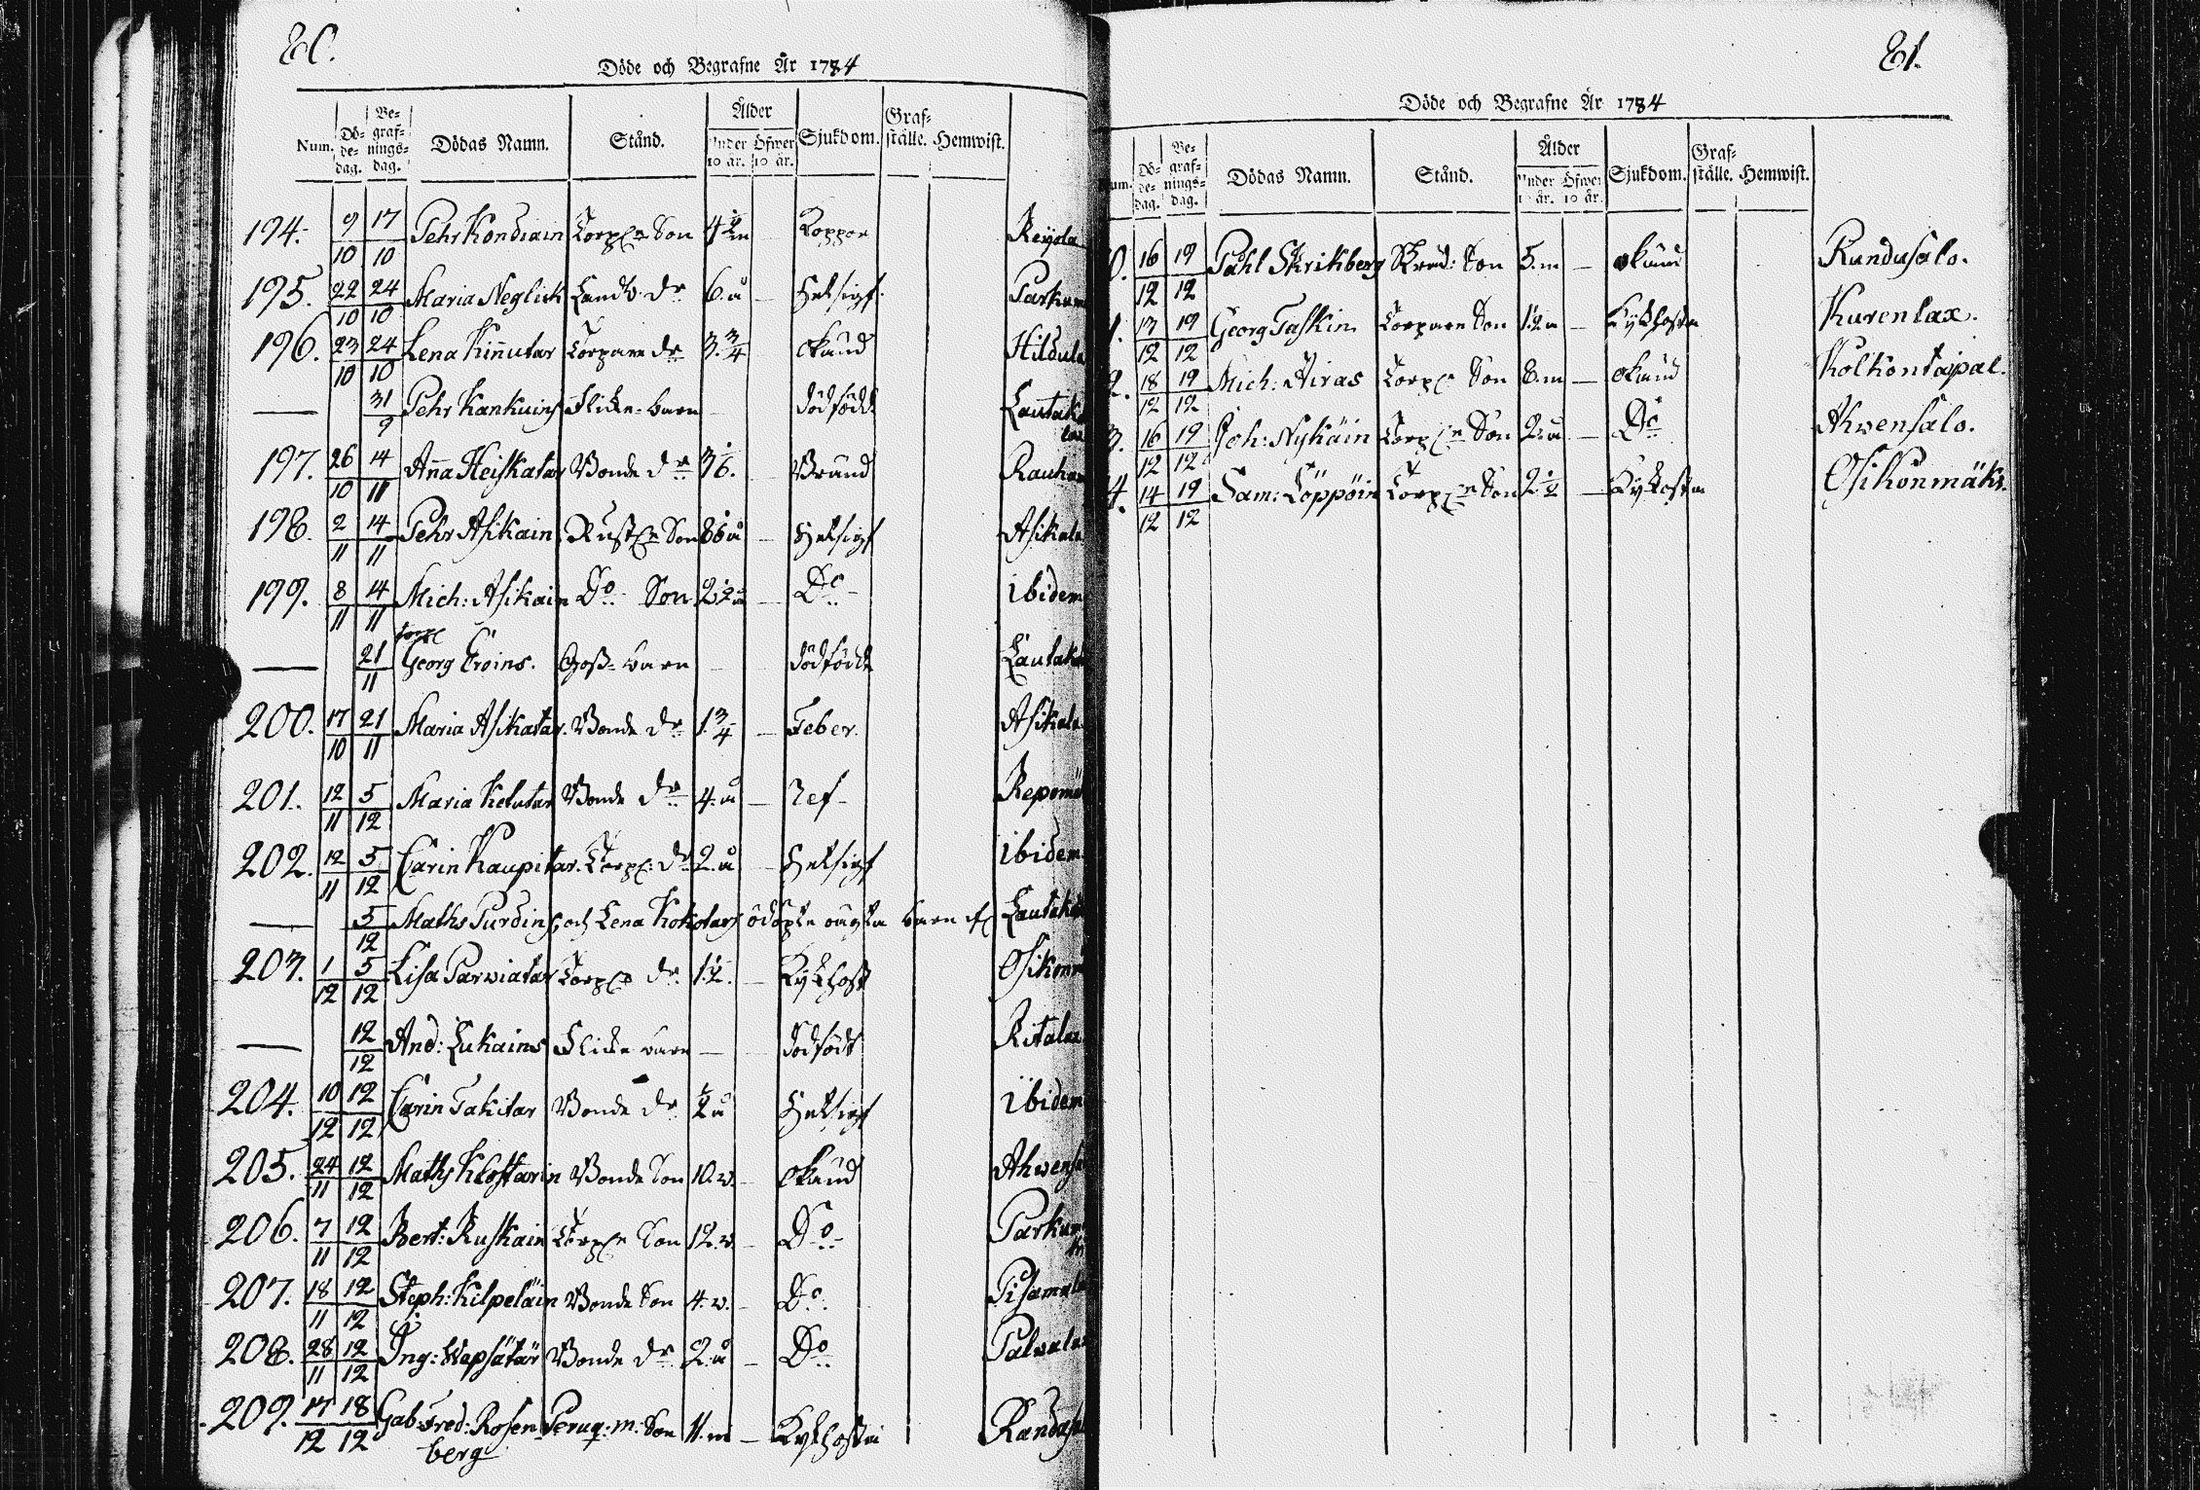 80.
Döde och Begrafne År 1784
Num. Dö-de-dag. Be-graf-nings-dag. Dödas Namn. Stånd. Ålder Under 10 år. Öfwer 10 år. Sjukdom. Graf-ställe. Hemwist.
194. 9/10 17/10 Pehr Kondiain Torp: Son Koppor Reijola
195. 22/10 24/10 Maria Neglick Landb: dr 6. å — Hetsigf. Parkum
196. 23/10 24/10 Lena Kiñutar Torpare dr 3. 3/4 okänd Hildula
— 31/9 Pehr Kankuins Flicke-barn — dödfödt Lautak
197. 26/10 14/11 Aña Heiskatar Bonde dr Bränd Rauha
198. 2/11 14/11 Pehr Asikain Rust: Son — Hetsigf Asikala
199. 8/11 14/11 Mich: Asikain Do Son 2 1/2 å — Do ibidem
— 21/11 Georg Eroins. Goss-barn — dödfödt Lautak
200. 17/10 21/11 Maria Asikatar. Bonde dr 1. 3/4 — Feber. Asikala
201. 12/11 5/12 Maria Kelutar Bonde dr 4. å — Repom
202. 12/11 5/12 Carin Kaupitar. Torp: dr 2. å — Hetsigf ibidem
— 5/12 Maths Purdins och Lena Kokotars odöpte oägta barn Lautak
203. 1/12 5/12 Lisa Parwiatar Torp: dr 1. 1/2. — Kykhost Osikon
— 12/12 And: Lukains Flicke barn — dödfödt Ritalax
204. 10/12 12/12 Carin Takitar Bonde dr 1/2 å Hetsigf ibidem
205. 24/11 12/12 Maths Klostarin Bonde Son 10. v. — okänd Ahwensa
206. 7/11 12/12 Bert: Ruskain Torp: Son 12. v. — Do Parkum
207. 18/11 12/12 Steph: Kilpeläin Bonde Son 4. v. — Do. Pisamala
208. 28/11 12/12 Ing: Wapsätär Bonde dr 2. å — Do Palwala
209. 17/12 18/12 Gab: Fred: Rosen Peruq: m: Son 11. m — Kykhosta Randasa
berg
81.
Döde och Begrafne År 1784
Num. Dö-de-dag. Be-graf-nings-dag. Dödas Namn. Stånd. Ålder Under 10 år. Öfwer 10 år. Sjukdom. Graf-ställe. Hemwist.
0. 16/12 19/12 Påhl Skrikberg Skräd: Son 5. m — okänd Randusalo.
1. 13/12 19/12 Georg Taskin Torpare Son — Kykhosta Kurenlax.
2. 18/12 19/12 Mich: Airas Torp: Son 8. m — okänd Kolkontaipal.
3. 16/12 19/12 Joh: Nykäin Torp: Son 2. å — Do Ahwensalo.
4. 14/12 19/12 Sam: Löppöin Torp: Son 2 1/2 — Kykhosta Osikonmäki.